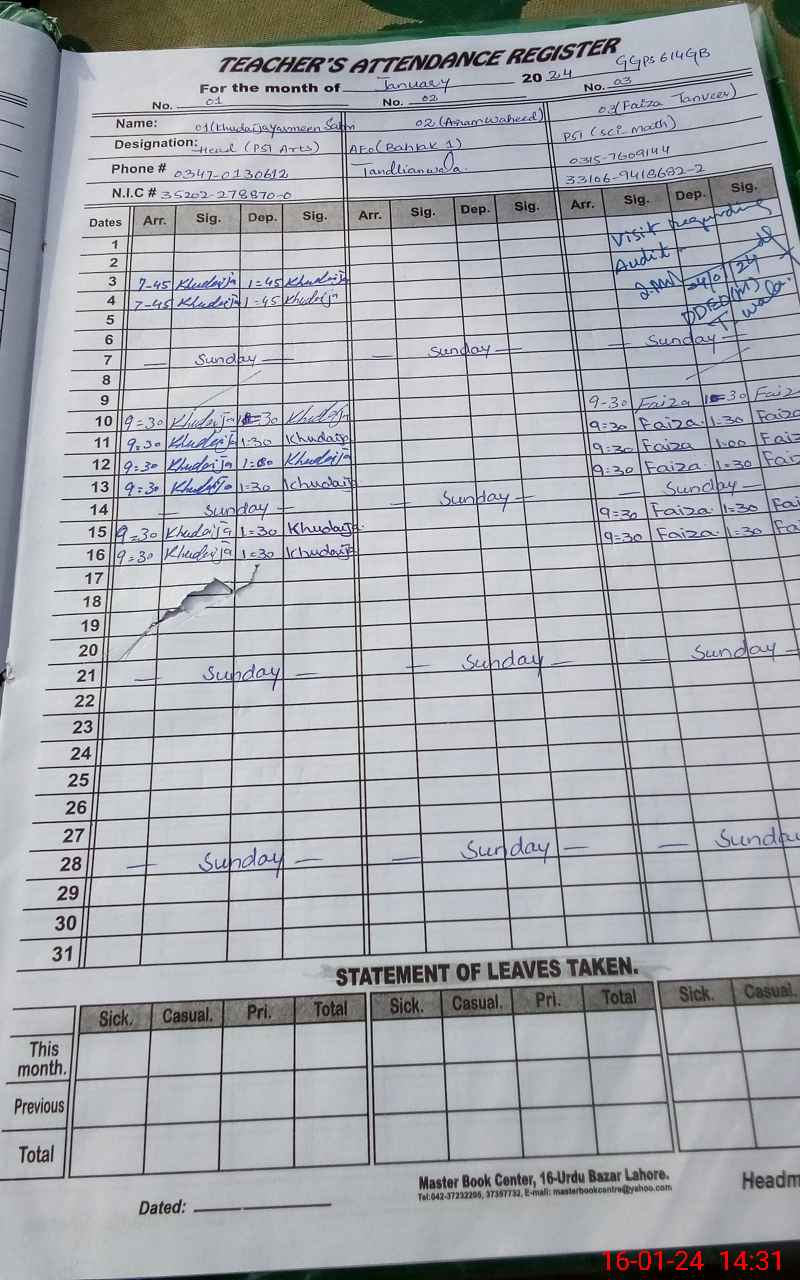 TEACHER'S ATTENDANCE REGISTER
GGPS 614GB
For the month of January 2024
No. 01 No. 02 No. 03
Name: 01 (Khudaija yasmeen 02 (Anam Waheed) 03 (Faiza Tanveer)
Designation: Head (PST Arts) AEO (Bahlak 1) PST (Sci. math)
Phone # 0347-0130612 Tandlianwala. 0315-7609144
N.I.C # 35202-278870-0 33106-9418682-2
Dates Arr. Sig. Dep. Sig. Arr. Sig. Dep. Sig. Arr. Sig. Dep. Sig.
1 Visit regarding
2 Audit
3 7-45 Khudaija 1=45 Khudaija
4 7-45 Khudaija 1-45 Khudaija
5
6
7 — Sunday — — Sunday — — Sunday —
8
9
10 9=30 Khudaija 1=30 Khudaija 9-30 Faiza 1=30 Faiz
11 9=30 Khudaija 1=30 Khudaija 9=30 Faiza 1-30 Faiza
12 9=30 Khudaija Khudaija 9=30 Faiza 1=00 Faiz
13 9=30 Khudaija 1=30 Khudaija 9=30 Faiza 1=30 Fai
14 — Sunday — — Sunday — — Sunday —
15 9=30 Khudaija 1=30 Khudaija 9=30 Faiza 1=30 Fai
16 9=30 Khudaija 1=30 Khudaija 9=30 Faiza 1=30 Fa
17
18
19
20
21 — Sunday — — Sunday — — Sunday —
22
23
24
25
26
27
28 — Sunday — — Sunday — — Sunday
29
30
31
STATEMENT OF LEAVES TAKEN.
Sick. Casual. Pri. Total Sick. Casual. Pri. Total Sick. Casual.
This
month.
Previous
Total
Master Book Center, 16-Urdu Bazar Lahore.
Tel:042-37232295, 37357732, E-mail: masterbookcentre@yahoo.com
Headm
Dated:
16-01-24 14:31